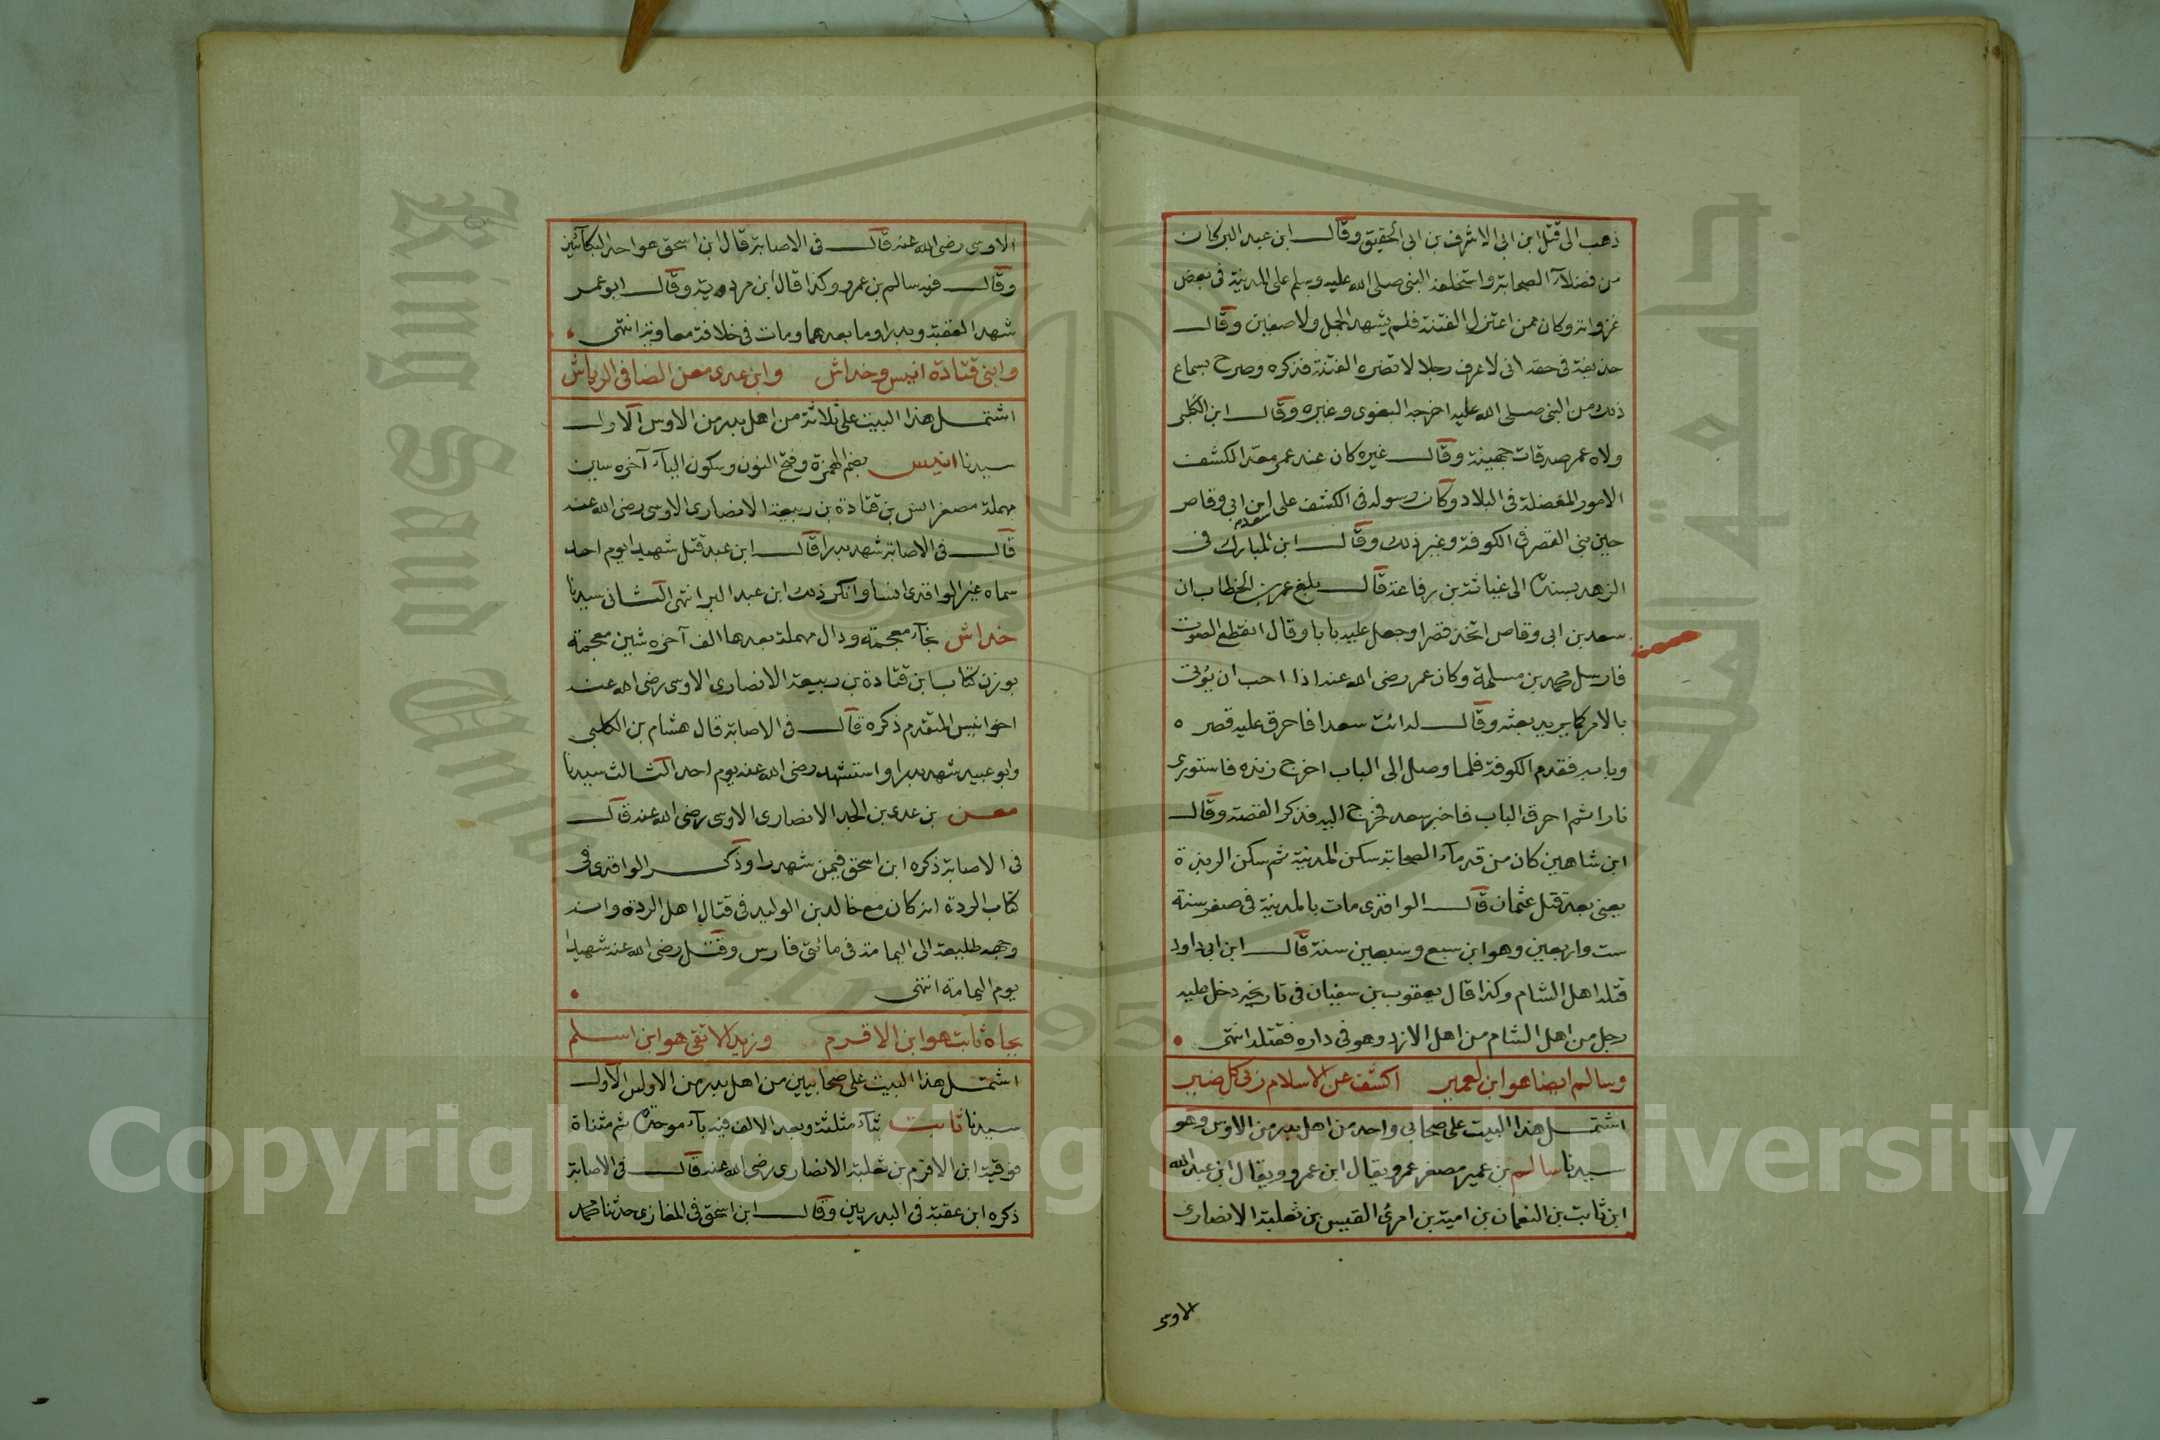 ذهب الى قتل ابن ابى الاشرف بن ابى الحقيق وقال ابن عبد البر كان
من فضلآء الصحابة واستخلفه النبى صلى الله عليه وسلم على المدينة فى بعض
غزواته وكان ممن اعتزل الفتنة فلم يشهد الجمل ولا صفين وقال
حذيفة فى حقه انى لاعرف رجلا لا تضره الفتنة فذكره وصرح بسماع
ذلك من النبى صلى الله عليه اخرجه البغوى وغيره وقال ابن الكلبى
ولاه عمر صدقات جهينة وقال غيره كان عند عمر معد الكشف
الامور المعضلة فى البلاد وكان رسوله فى الكشف على ابن ابى وقاص
سعد
حين بنى القصر فى الكوفة وغير ذلك وقال ابن المبارك فى
الزهد بسنده الى عباثة بن رفاعة قال بلغ عمر بن الخطاب ان
سعد بن ابى وقاص اتخذ قصرا وجعل عليه بابا وقال انقطع الصوت
فارسل محمد بن مسلمة وكان عمر رضى الله عنه اذا احب ان يؤتى
بالامر كما يريد بعثه وقال له ائت سعدا فاحرق عليه قصره
وبابه فقدم الكوفة فلما وصل الى الباب اخرج زنده فاستورى
نارا ثم احرق الباب فاخبر سعد فخرج اليه فذكر القصة وقال
ابن شاهين كان من قدمآء الصحابة سكن المدينة ثم سكن الربذة
يعنى بعد قتل عثمان قال الواقدى مات بالمدينة فى صفر سنة
ست واربعين وهو ابن سبع وسبعين سنة قال ابن ابى داود
قتله اهل الشام وكذا قال يعقوب بن سفيان فى تاريخه دخل عليه
رجل من اهل الشام من اهل الازد وهو فى داره فقتله انتهى
وسالم ايضا هو ابن لعمير اكشف عن الاسلام زى كل ضير
اشتمل هذا البيت على صحابى واحد من اهل بدر من الاوس وهو
سيدنا سالم بن عمير مصغر عمر ويقال ابن عمرو ويقال ابن عبد الله
ابن ثابت بن النعمان بن امية بن امرئ القيس بن ثعلبة الانصارى
الاوسى
الاوسى رضى الله عنه قال فى الاصابة قال ابن اسحق هو احد البكآئين
وقال فيه سالم بن عمرو وكذا قال ابن مردويه وقال ابو عمر
شهد العقبة وبدرا وما بعدهما ومات فى خلافة معاوية انتهى
وابنى قتادة انيس وخداش وابن عدى معن الضافى الرياش
اشتمل هذا البيت على ثلاثة من اهل بدر من الاوس الاول
سيدنا انيس بضم الهمزة وفتح النون وسكون اليآء آخره سين
مهملة مصغر انس بن قتادة بن ربيعة الانصارى الاوسى رضى الله عنه
قال فى الاصابة شهد بدرا قال ابن عبد قتل شهيدا يوم احد
سماه غير الواقدى انسا وانكر ذلك ابن عبد البر انتهى الثانى سيدنا
خداش بخآء معجمة ودال مهملة بعدها الف آخره شين معجمة
بوزن كتاب ابن قتادة بن ربيعة الانصارى الاوسى رضى الله عنه
اخو انيس المتقدم ذكره قال فى الاصابة قال هشام بن الكلبى
وابو عبيد شهد بدرا واستشهد رضى الله عنه يوم احد الثالث سيدنا
معن بن عدى بن الجد الانصارى الاوسى رضى الله عنه قال
فى الاصابة ذكره ابن اسحق فيمن شهد بدرا وذكر الواقدى فى
كتاب الردة انه كان مع خالد بن الوليد فى قتال اهل الردة وانه
وجهه طليعة الى اليمامة فى مائتى فارس وقتل رضى الله عنه شهيدا
يوم اليمامة انتهى
بجاه ثابت هو ابن الاقرم وزيد الاتقى هو ابن اسلم
اشتمل هذا البيت على صحابيين من اهل بدر من الاوس الاول
سيدنا ثابت بثآء مثلثة وبعد الالف فيه بآء موحدة ثم مثناة
فوقية ابن الاقرم بن ثعلبة الانصارى رضى الله عنه قال فى الاصابة
ذكره ابن عقبة فى البدريين وقال ابن اسحق فى المغازى حدثنا محمد
Copyright © King Saud University
King Saud University
1957
جامعة الملك سعود